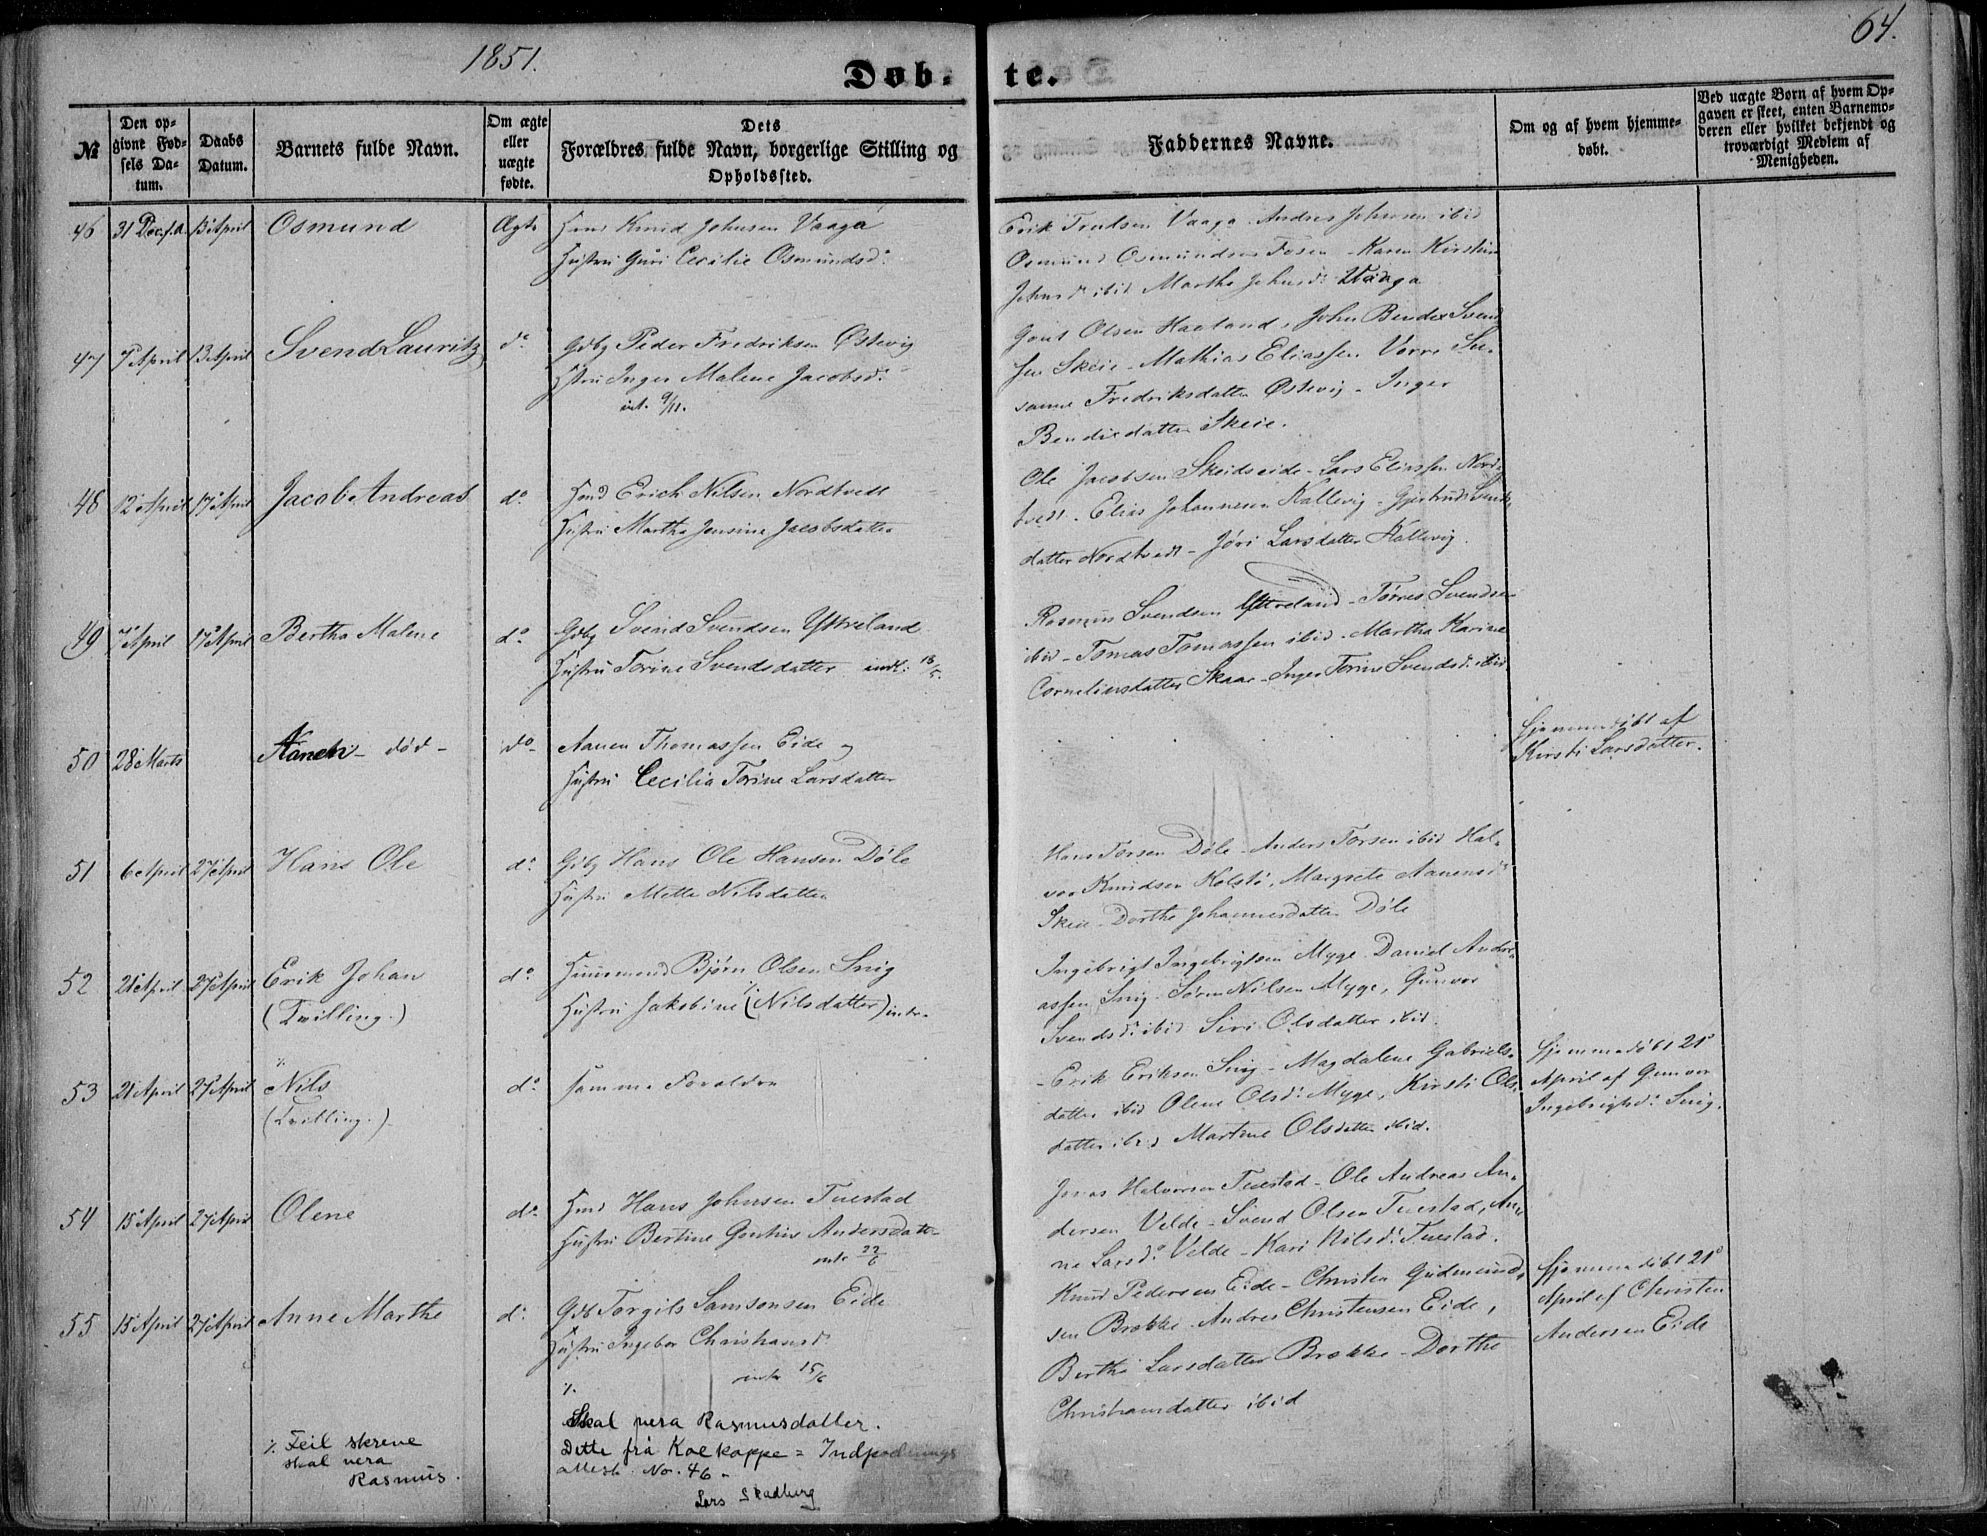 1851.
64.
Døb- te.
№
Den opgivne Fødsels Datum.
Daabs Datum.
Barnets fulde Navn.
Om ægte eller uægte fødte.
Dets Forældres fulde Navn, borgerlige Stilling og Opholdssted.
Faddernes Navne.
Om og af hvem hjemmedøbt.
Ved uægte Børn af hvem Opgaven er skeet, enten Barnemoderen eller hvilket bekjendt og troværdigt Medlem af Menigheden.
46 31 Dec. f.A. 13 April Osmund Ægte
Knud Johnsen Vaaga
Hustru Guri Cecilie Osmundsd:
Erik Trudsen Vaaga - Andres Johnsen ibid
Osmund Osmundsen Fosen - Karen Kirstine
Johnsd: ibid Martha Johnsd: Vaaga
47 7 April 13 April Svend Lauritz do
Gdbr Peder Fredriksen Østevig
Hstru Inger Malene Jacobsd:
int. 9/11.
Gout Olsen Haaland, John Bendix Svend
sen Skeie - Mathias Eliassen Vorre Su-
sanne Fredriksdatter Østevig - Inger
Bendixdatter Skeie.
48 12 April 17 April Jacob Andreas do
Erich Nilsen Nordtvedt
Hustru Martha Jonsine Jacobsdatter
Ole Jacobsen Skeidseide - Lars Eliassen Nord-
tvedt - Elias Johannesen Kallevig - Gjertrud Svends
datter Nordtvedt - Jøri Larsdatter Kallevig.
49 April 17 April Bertha Malene do
Gdbr Svend Svendsen Yttreland
Hustru Torine Svendsdatter indl: 18/5.
Rasmus Svendsen Yttreland - Tørres Svendsen
ibid - Tomas Tomassen ibid - Martha Karine
Corneliusdatter Skaar - Inger Torine Svendsd: ibid
50 28 Marts Aanen - død - do
Aanen Thomassen Eide og
Hustru Cecilia Torine Larsdatter
Hjemmedøbt af
Kirsti Larsdatter.
51 6 April 27 April Hans Ole do
Gdbr Hans Ole Hansen Døle
Hustru Mette Nilsdatter
Hans Torsen Døle - Anders Torsen ibid Hal-
vor Knudsen Kolstø, Margrete Aanensd:
Skeie - Dorthe Johannesdatter Døle
52 21 April 27 April Erik Johan do
(Tvilling.)
Huusmand Bjørn Olsen Snig
Hustru Jakobine (Nilsdatter) intr.
Ingebrigt Ingebrigtsen Myge - Daniel Andre-
assen Snig - Søren Nilsen Myge, Gunvor
Svendsd: ibid Siri Olsdatter ibid.
53 21 April 27 April Nils do
(Tvilling.)
samme Forældre
- Erik Eriksen Snig - Magdalene Gabriels-
datter ibid Olene Olsd: Myge, Kirsti Ols-
datter ibid Martine Olsdatter ibid.
Hjemmedøbt 21
April af Gunvor
Ingebrigtsd: Snig.
54 15 April 27 April Olene do
Hans Johnsen Tuestad
Hustru Bertine Gontine Andersdatter
intr 22/6
Jonas Halvorsen Tuestad - Ole Andreas An-
dersen Velde - Svend Olsen Tuestad, An-
ne Larsd: Velde - Kari Nilsd: Tuestad.
55 15 April 27 April Anne Marthe do
Gdb Torgils Samsonsen Eide
Hustru Ingebor Christiansd:
intr 15/6
Knud Pedersen Eide - Christen Gudmund-
sen Brekke - Andres Christensen Eide,
Bertha Larsdatter Brekke - Dorthe
Christiansdatter ibid
Hjemmedøbt 21
April af Christen
Andersen Eide
⁒ Feil skreve
skal vera
Rasmus.
⁒
Skal vera Rasmusdatter.
Dette frå Koekoppe = Indpodnings
attest No. 46 -
Lars Skadberg